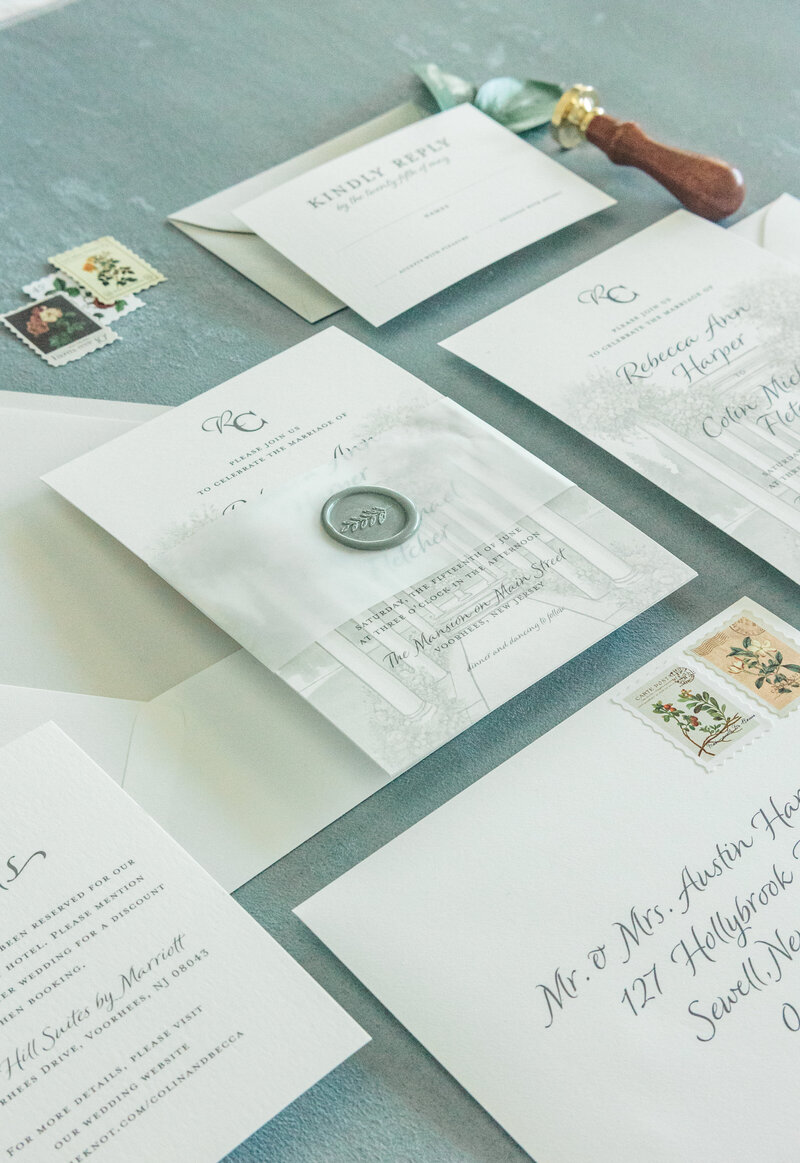 KINDLY REPLY
by the twenty fifth of may
NAMES
ACCEPTS WITH PLEASURE
DECLINES WITH REGRET
RC
PLEASE JOIN US
TO CELEBRATE THE MARRIAGE OF
Rebecca Ann
Harper
TO
Colin Mich
Fletc
SATURDAY
AT THREE
RC
PLEASE JOIN US
TO CELEBRATE THE MARRIAGE OF
Ann
SATURDAY, THE FIFTEENTH OF JUNE
AT THREE O'CLOCK IN THE AFTERNOON
The Mansion on Main Street
VOORHEES, NEW JERSEY
dinner and dancing to follow
CARTE POSTALE
Mr. & Mrs. Austin Har
127 Hollybrook
Sewell, New
0
ls
BEEN RESERVED FOR OUR
HOTEL. PLEASE MENTION
ER WEDDING FOR A DISCOUNT
HEN BOOKING.
Hill Suites by Marriott
RHEES DRIVE, VOORHEES, NJ 08043
FOR MORE DETAILS, PLEASE VISIT
OUR WEDDING WEBSITE
EKNOT.COM/COLINANDBECCA